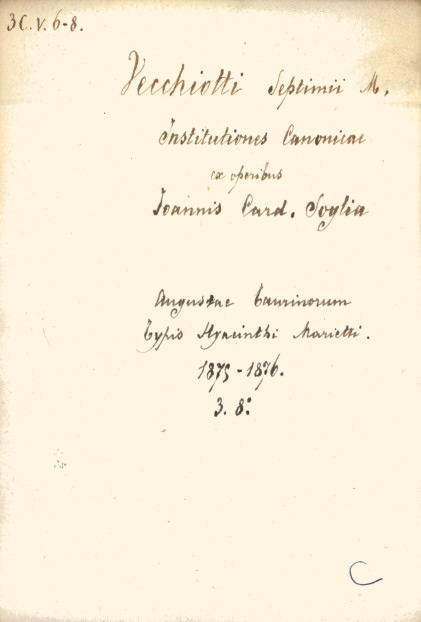 3C.V.6-8.
Vecchiotti Septimii M.
Institutiones Canonicae
ex operibus
Ioannis Card. Soglia
Augustae Taurinorum
Typis Hyacinthi Marietti.
1875-1876.
3. 8.°
C